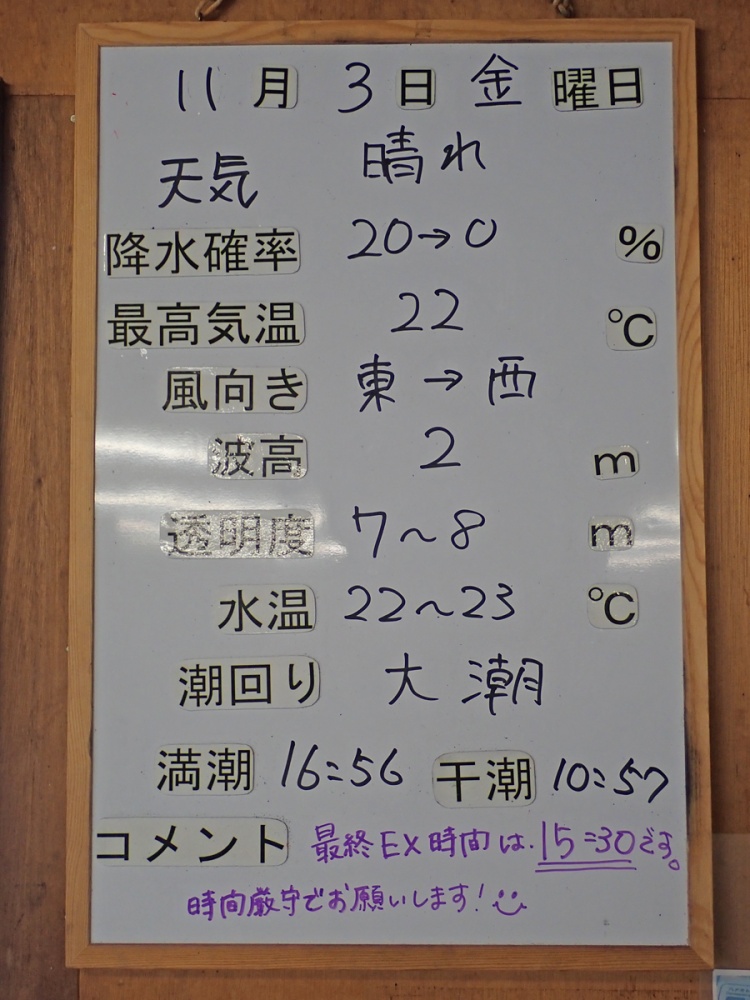 11月3日金曜日
天気 晴れ
降水確率 20→0 %
最高気温 22 ℃
風向き 東→西
波高 2 m
透明度 7〜8 m
水温 22〜23 ℃
潮回り 大潮
満潮 16:56 干潮 10:57
コメント 最終EX時間は、15:30です。
時間厳守でお願いします!